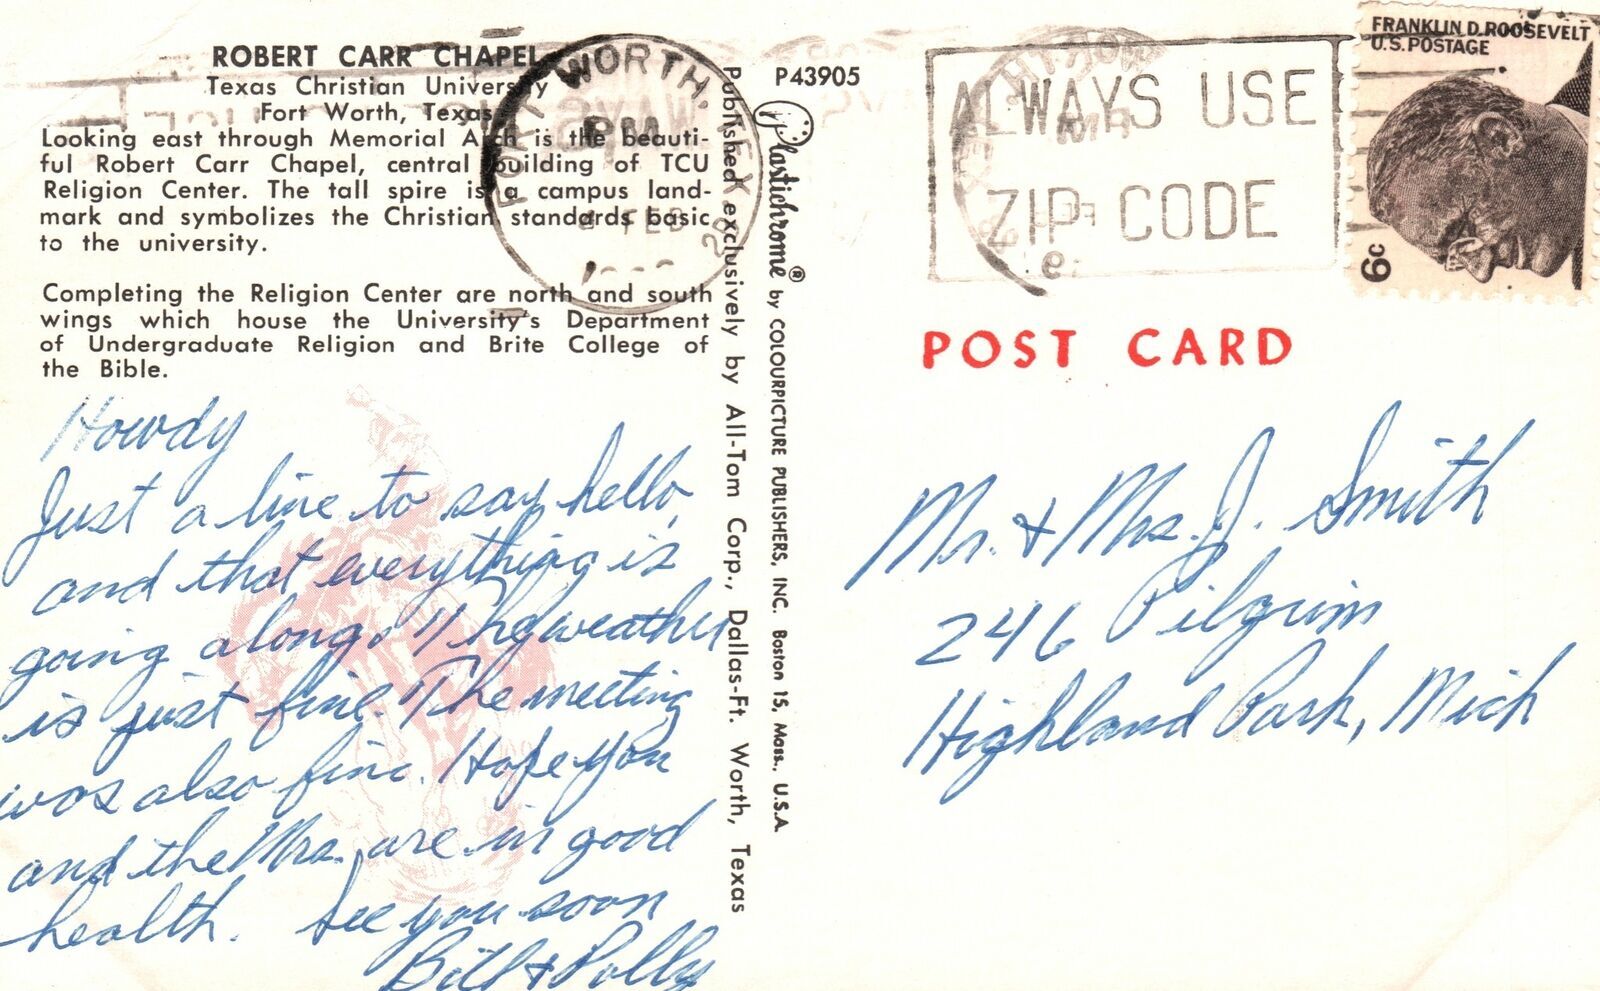 ROBERT CARR CHAPEL
Texas Christian University
Fort Worth, Texas
Looking east through Memorial Arch is the beauti-
ful Robert Carr Chapel, central building of TCU
Religion Center. The tall spire is a campus land-
mark and symbolizes the Christian standards basic
to the university.
Completing the Religion Center are north and south
wings which house the University's Department
of Undergraduate Religion and Brite College of
the Bible.
Howdy
Just a line to say hello,
and that everything is
going along. The weather
is just fine. The meeting
was also fine. Hope you
and the Mrs. are in good
health. See you soon
Bill & Polly
Published exclusively by All-Tom Corp., Dallas-Ft. Worth, Texas
P43905
Plastichrome® by COLOURPICTURE PUBLISHERS, INC. Boston 15, Mass., U.S.A.
FORT WORTH, TEX.
PM
FEB
ALWAYS USE
ZIP CODE
FRANKLIN D. ROOSEVELT
U.S. POSTAGE
6c
POST CARD
Mr. & Mrs. J. Smith
246 Pilgrim
Highland Park, Mich